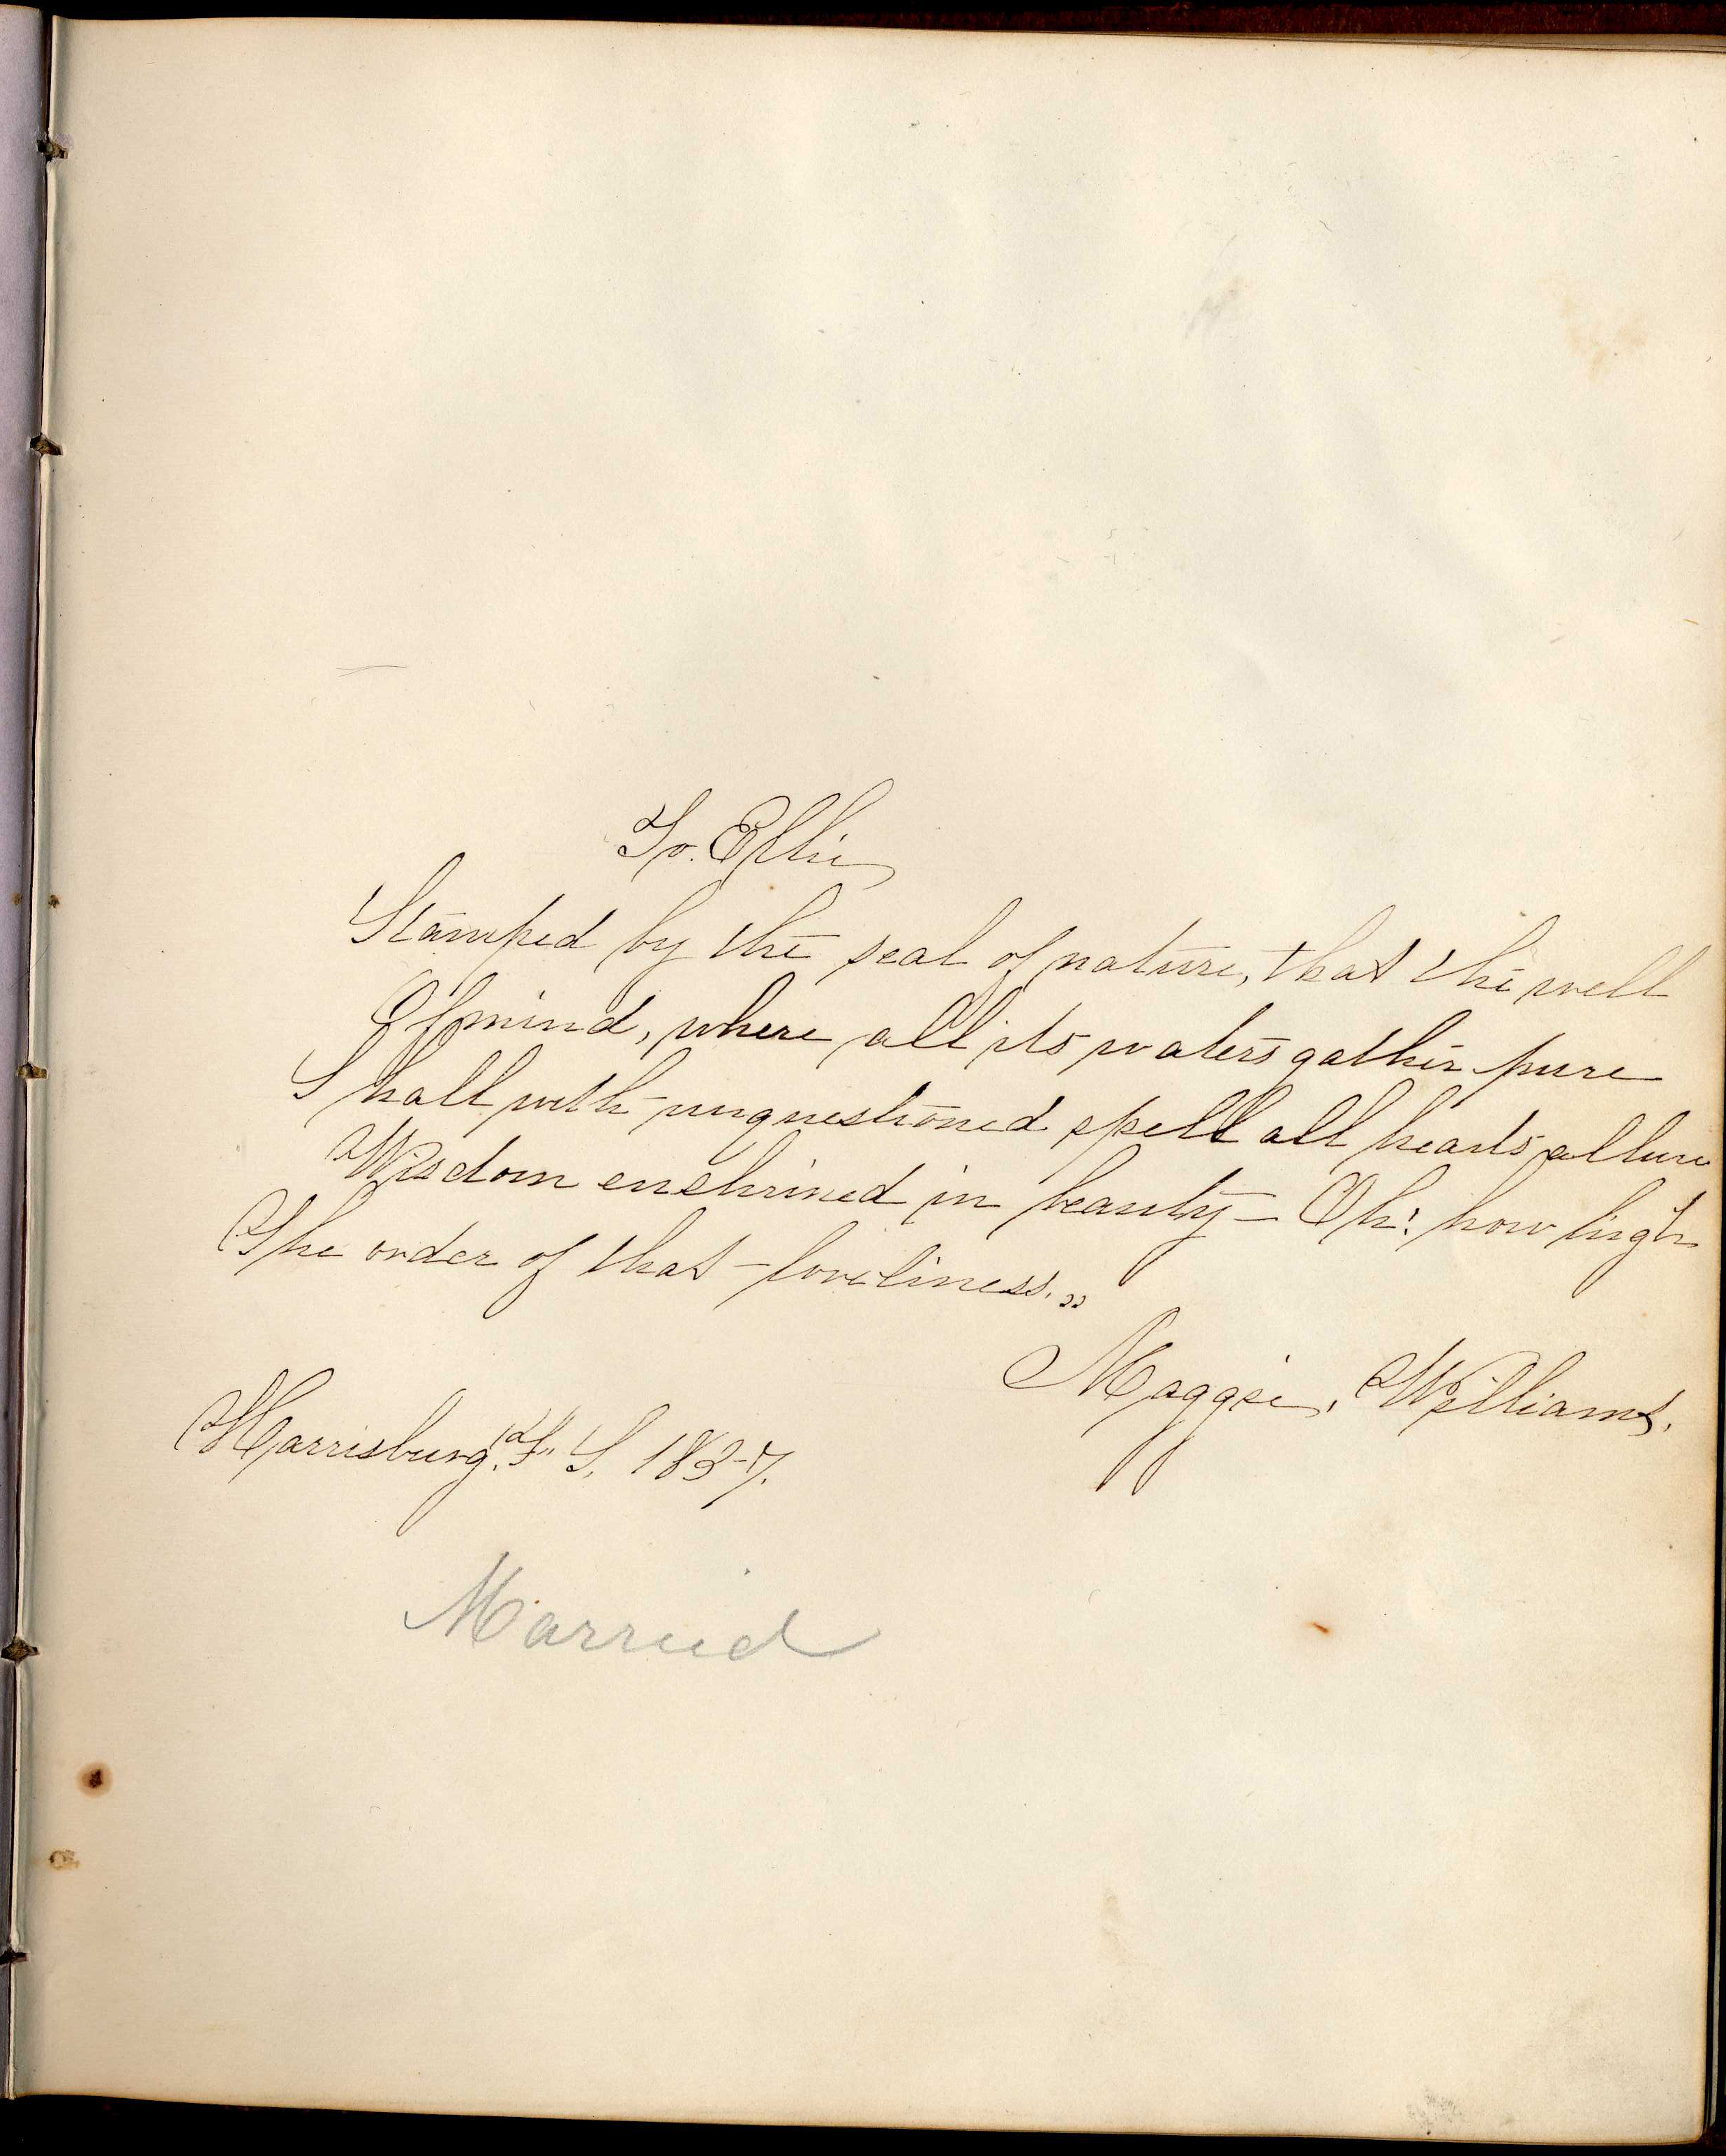 To. Effie
Stamped by the seal of nature, that the well
Of mind, where all its waters gather pure
Shall with unquestioned spell all hearts allure
Wisdom enshrined in beauty – Oh! how high
The order of that loveliness."
Maggie, Williams.
Harrisburg. 1857.
Married